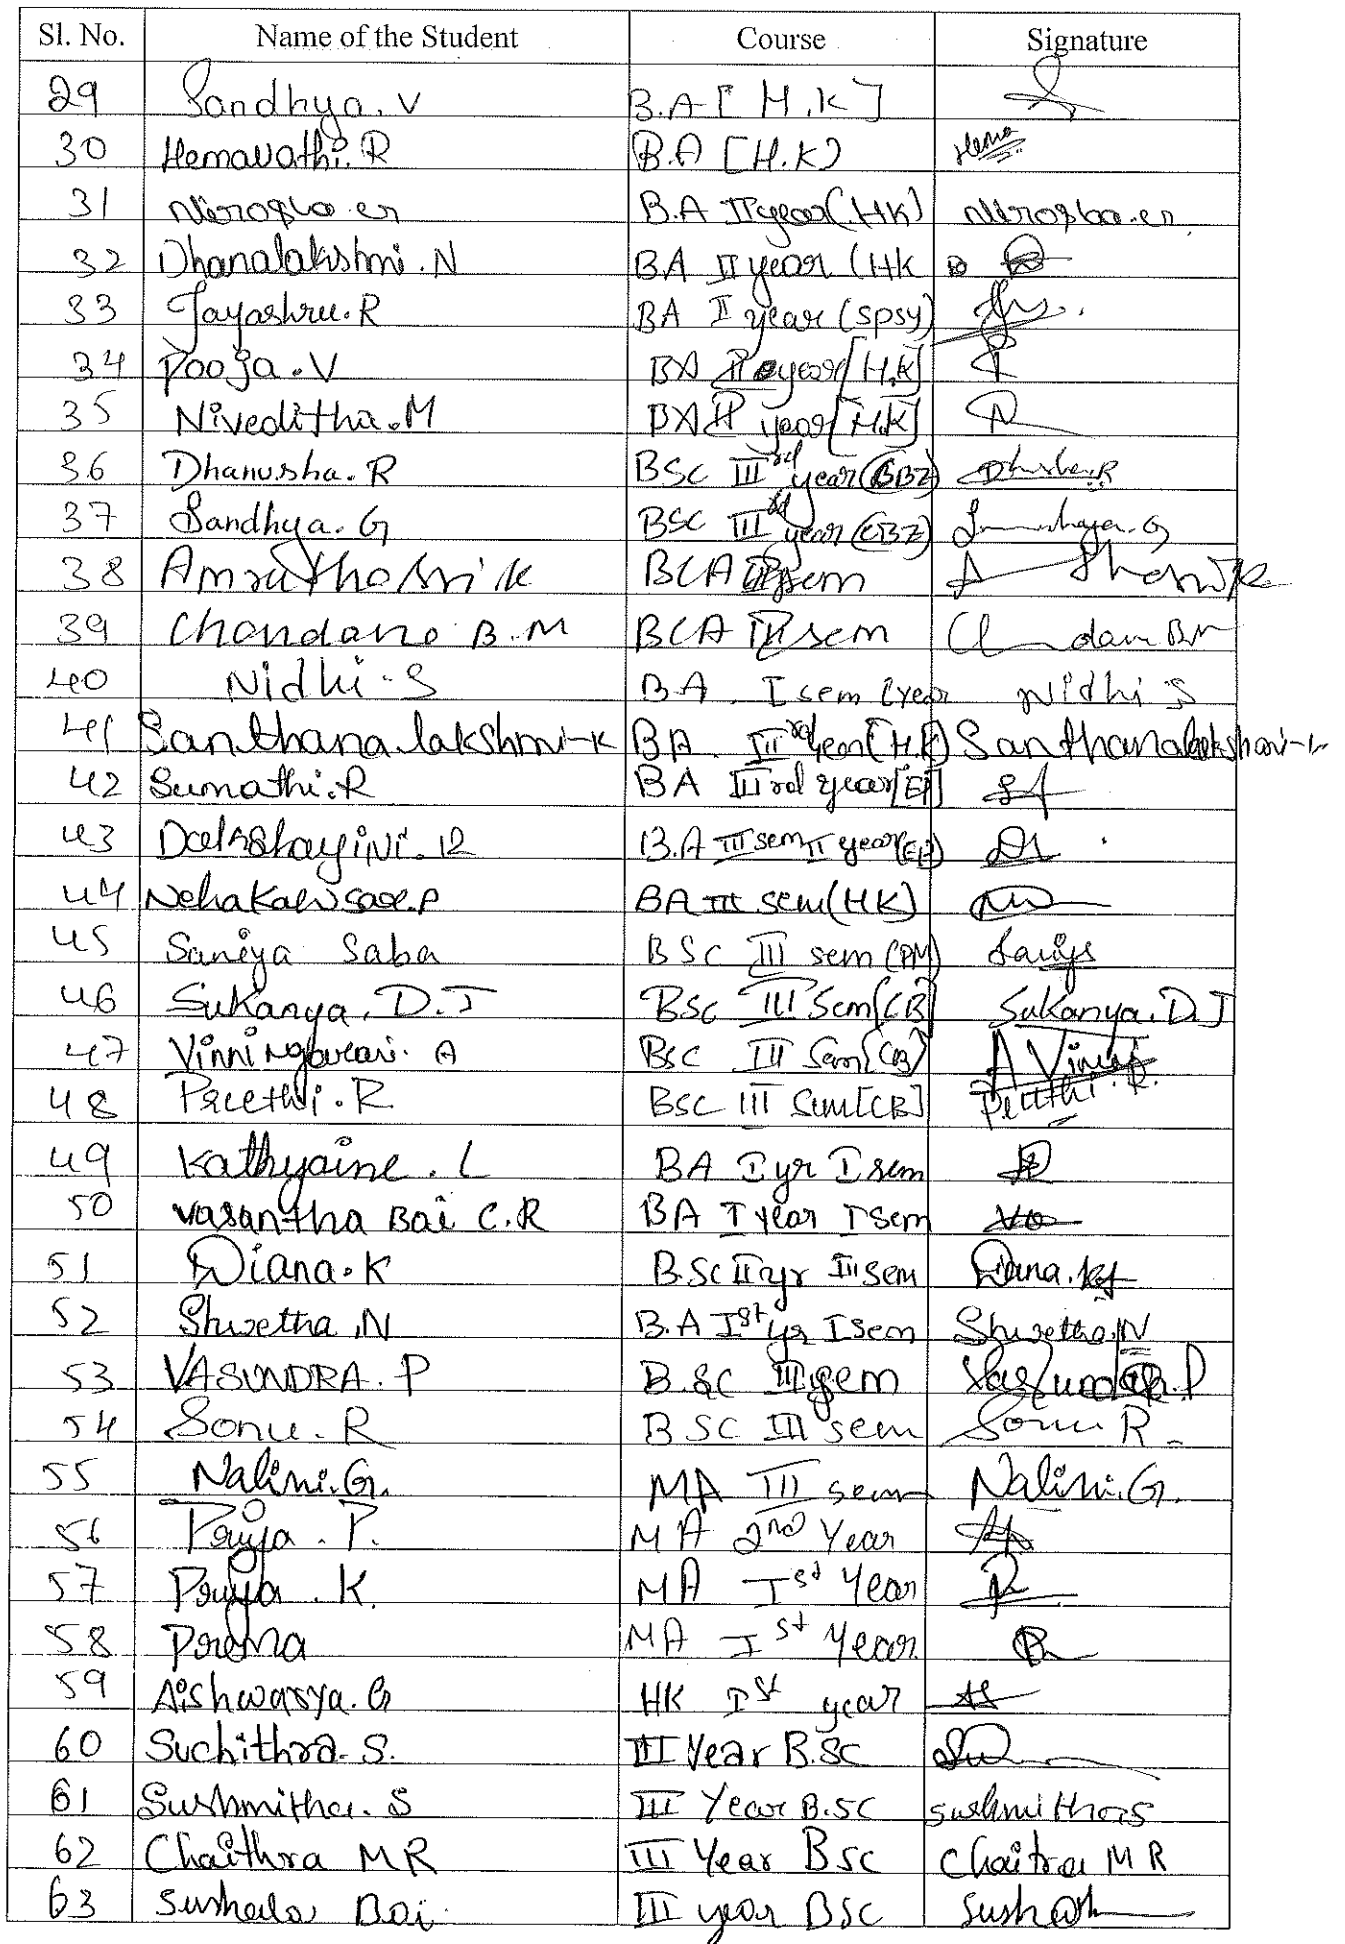 Sl. No. Name of the Student Course Signature
29 Sandhya. V B.A [H.K]
30 Hemavathi. R B.A [H.K) Hema
31 B.A II year (HK)
32 Dhanalakshmi. N BA II year (HK
33 Jayashree. R BA I year (spsy)
34 Pooja. V BA II year [H.K]
35 Niveditha. M BA II year [H.K]
36 Dhanusha. R BSC III rd year (CBZ)
37 Sandhya. G BSC III rd year (CBZ)
38 BCA sem
39 Chandana B.M BCA sem
40 Nidhi. S B.A. I sem 1 year Nidhi S
41 Santhana lakshmi-K BA. III rd year (H.K) Santhanalakshmi-K
42 Sumathi. R BA III rd year [EP]
43 Dakshayini. R B.A III sem II year (EP)
44 BA III sem (HK)
45 Saniya Saba BSC III sem (PM) Saniya
46 Sukanya. D.J BSc III Sem [CB] Sukanya. D.J
47 A BSc III Sem [CB] A Vinni
48 Preethi. R BSC III Sem [CB] Preethi. R.
49 Kathyaine. L BA I yr I sem
50 Vasantha Bai C.R BA I year I sem
51 Diana. K B.Sc II yr III sem Diana. K
52 Shwetha. N B.A Ist yr I sem Shwetha. N
53 VASUNDRA. P B.SC III sem Vasundra. P
54 Sonu. R BSC III sem Sonu. R
55 Nalini. G. MA III sem Nalini. G.
56 Priya. P. MA 2nd Year
57 Priya. K. MA Ist Year
58 Prema MA Ist Year
59 Aishwarya. G HK Ist year
60 Suchithra. S. III Year B.SC
61 Sushmitha. S III Year B.SC Sushmitha S
62 Chaithra M R III Year BSC Chaitra M R
63 Susheela Bai III year BSC